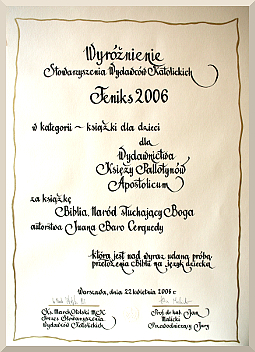 Wyróżnienie
Stowarzyszenia Wydawców Katolickich
Feniks 2006
w kategorii ~ książki dla dzieci
dla
Wydawnictwa
Księży Pallotynów
Apostolicum
za książkę
Biblia. Naród słuchający Boga
autorstwa Juana Baro Cerquedy
która jest nad wyraz udaną próbą
przełożenia Biblii na język dziecka
Warszawa, dnia 22 kwietnia 2006 r.
Ks. Marek Otolski MIC
Prezes Stowarzyszenia
Wydawców Katolickich
Prof. dr hab. Jan
Malicki
Przewodniczący Jury